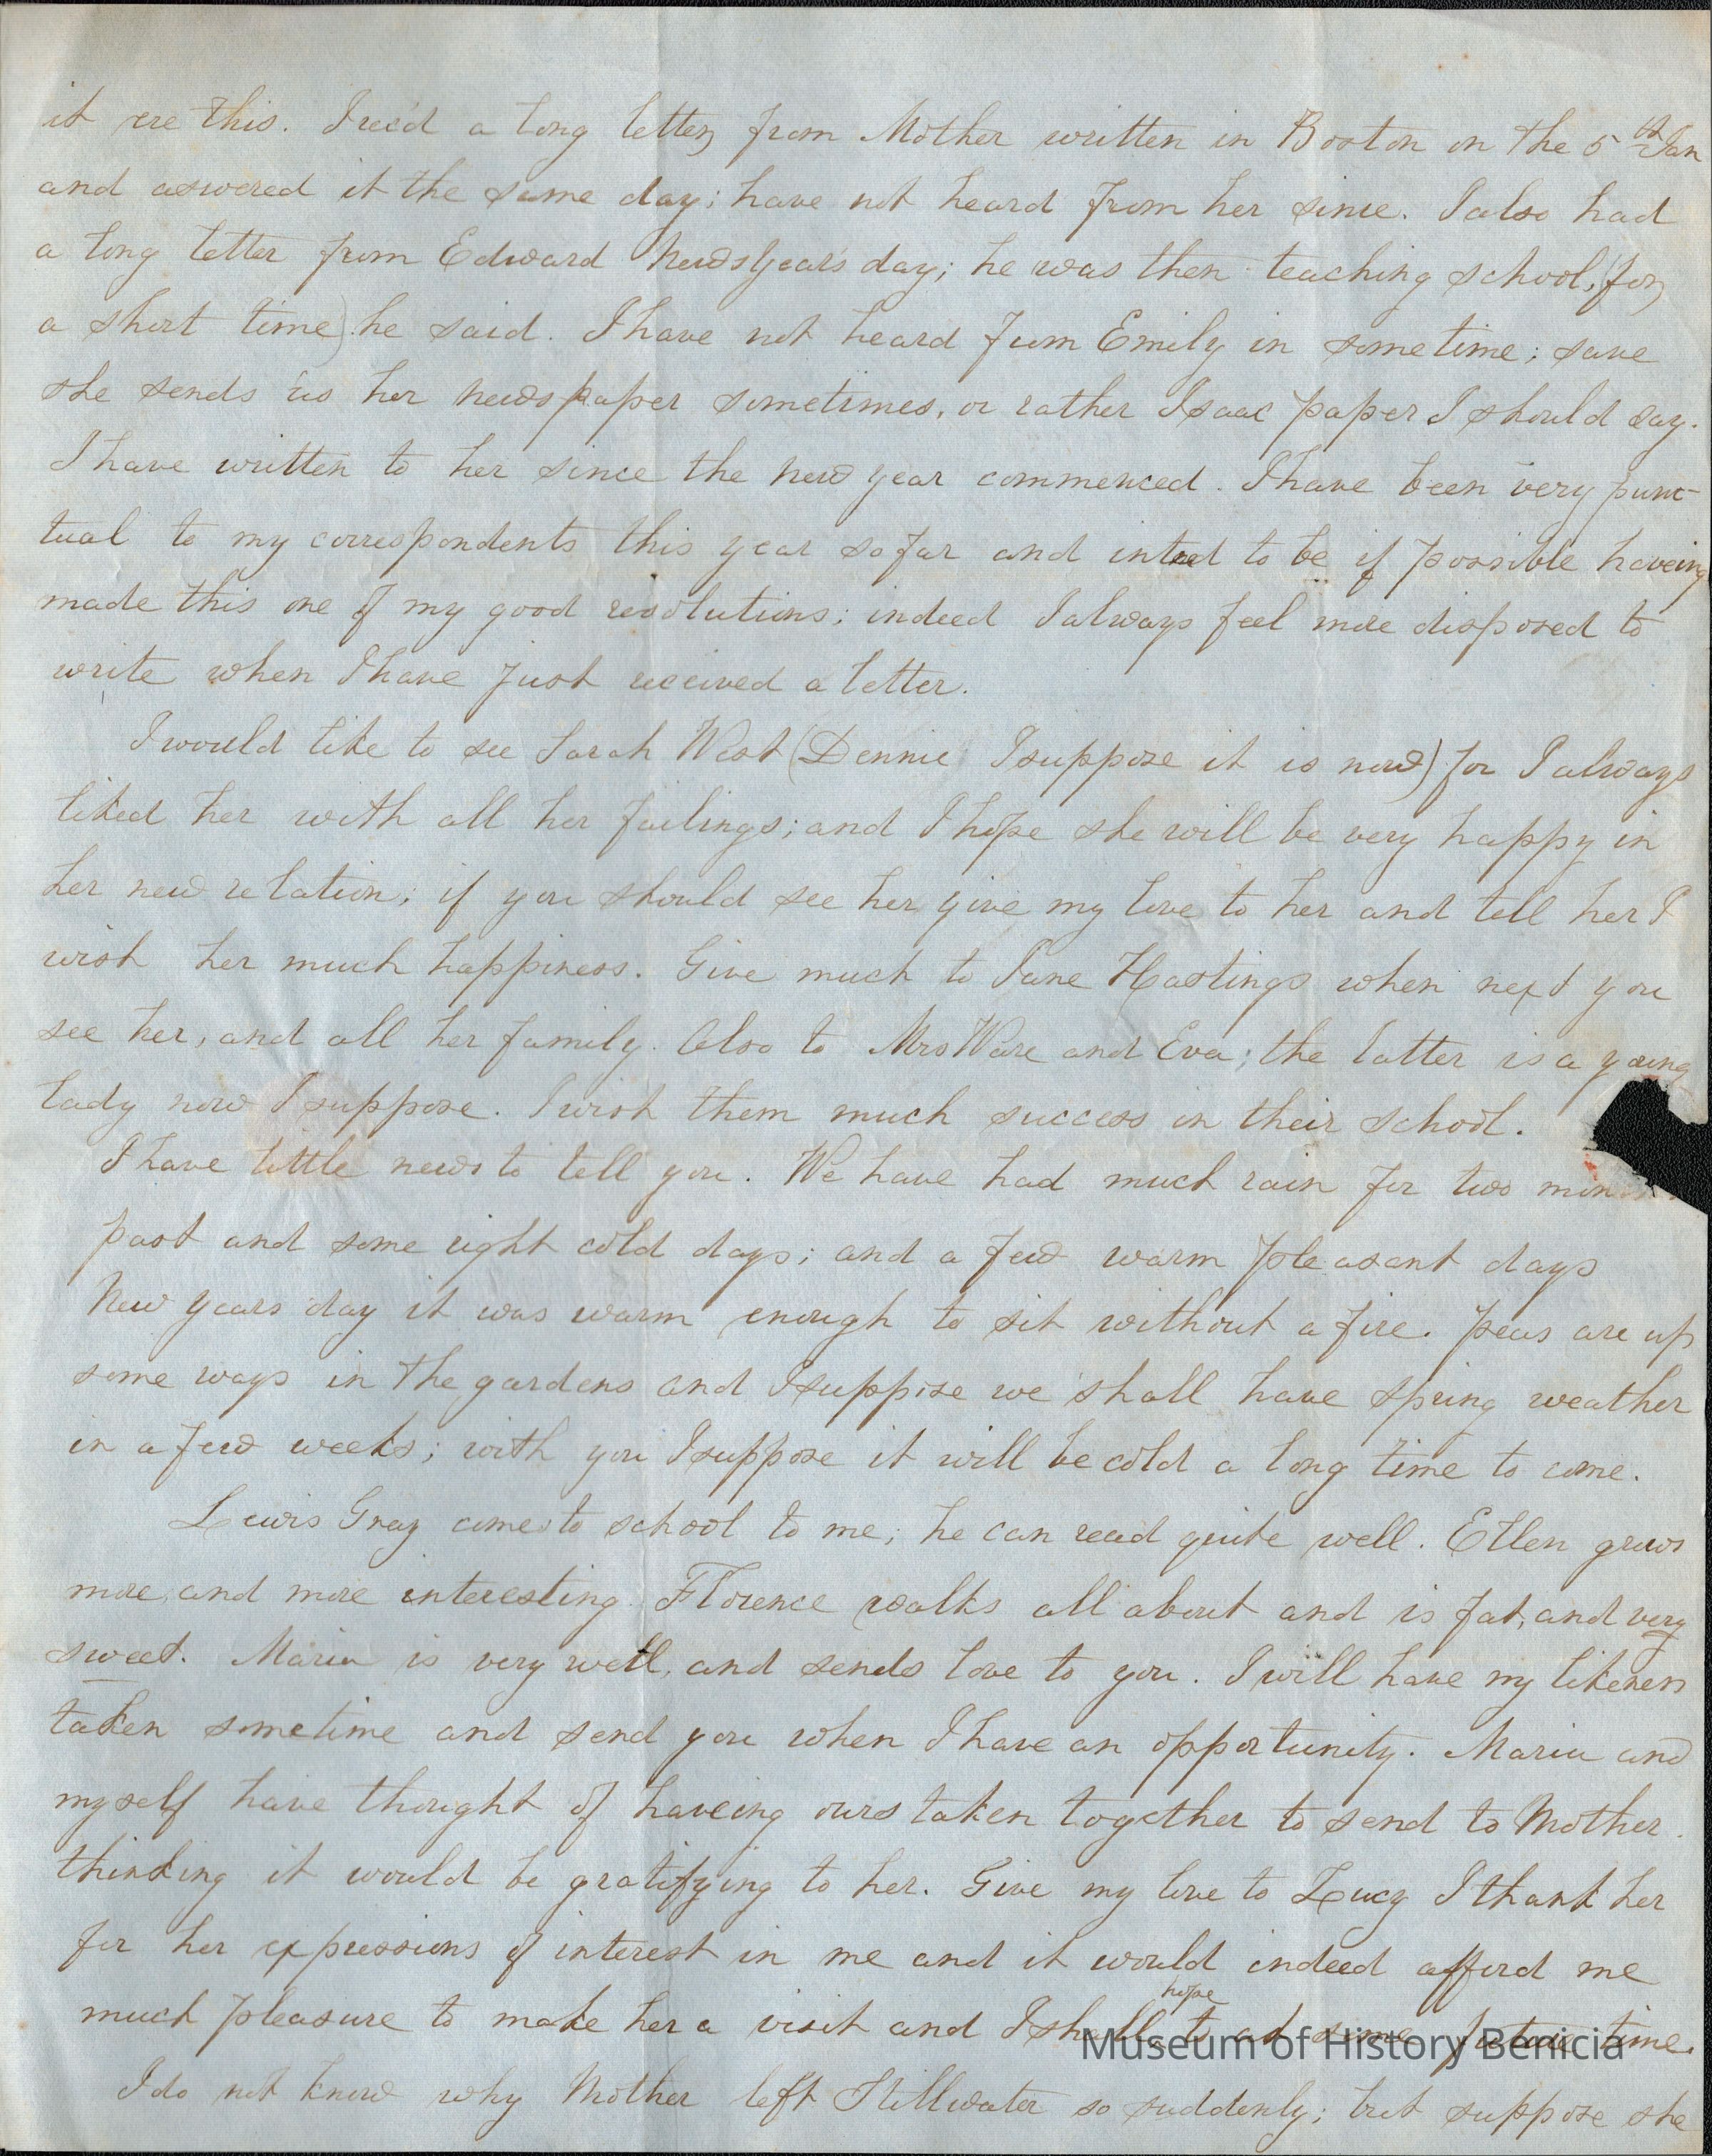 it ere this. I rec'd a long letter from Mother written in Boston on the 5th Jan
and aswered it the same day; have not heard from her since. I also had
a long letter from Edward New Year's day; he was then teaching school, (for
a short time) he said. I have not heard from Emily in sometime; save
she sends us her newspaper sometimes, or rather Isaac paper I should say.
I have written to her since the new year commenced. I have been very punc-
tual to my correspondents this year so far and inted to be if possible haveing
made this one of my good resolutions; indeed I always feel more disposed to
write when I have just received a letter.
I would like to see Sarah West (Dennie I suppose it is now) for I always
liked her with all her failings; and I hope she will be very happy in
her new relation; if you should see her give my love to her and tell her I
wish her much happiness. Give much to Jane Hastings when next you
see her, and all her family. Also to Mrs Ware and Eva; the latter is a young
lady now I suppose. I wish them much success in their school.
I have little news to tell you. We have had much rain for two mon
past and some right cold days; and a few warm pleasant days
New years day it was warm enough to sit without a fire. Peas are up
some ways in the gardens and I suppose we shall have spring weather
in a few weeks; with you I suppose it will be cold a long time to come.
Lewis Gray comes to school to me; he can read quite well. Ellen grows
more and more interesting. Florence walks all about and is fat, and very
sweet. Maria is very well, and sends love to you. I will have my likeness
taken sometime and send you when I have an opportunity. Maria and
myself have thought of haveing ours taken together to send to Mother.
thinking it would be gratifying to her. Give my love to Lucy I thank her
for her expressions of interest in me and it would indeed afford me
much pleasure to make her a visit and I shall hope to at some future time.
I do not know why Mother left Stillwater so suddenly; but suppose she
Museum of History Benicia